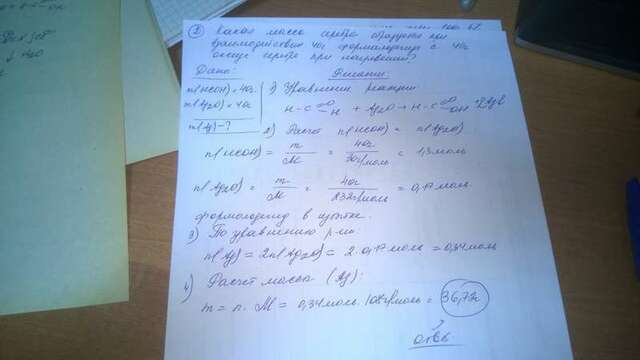 ② Какая масса серебра образуется при
взаимодействии 40г формальдегида с 40г
оксида серебра при нагревании?
Дано: Решение:
m(HCOH) = 40г 1) Уравнение реакции
m(Ag2O) = 40г H-C=O H + Ag2O → H-C=O OH + 2Ag↓
m(Ag) - ? 2) Расчет n(HCOH) и n(Ag2O)
n(HCOH) = m/M = 40г/30г/моль = 1,3 моль
n(Ag2O) = m/M = 40г/232г/моль = 0,17 моль
формальдегид в избытке.
3) По уравнению р-ии
n(Ag) = 2n(Ag2O) = 2·0,17 моль = 0,34 моль
4) Расчет массы (Ag):
m = n·M = 0,34 моль·108г/моль = 36,72г
ответ